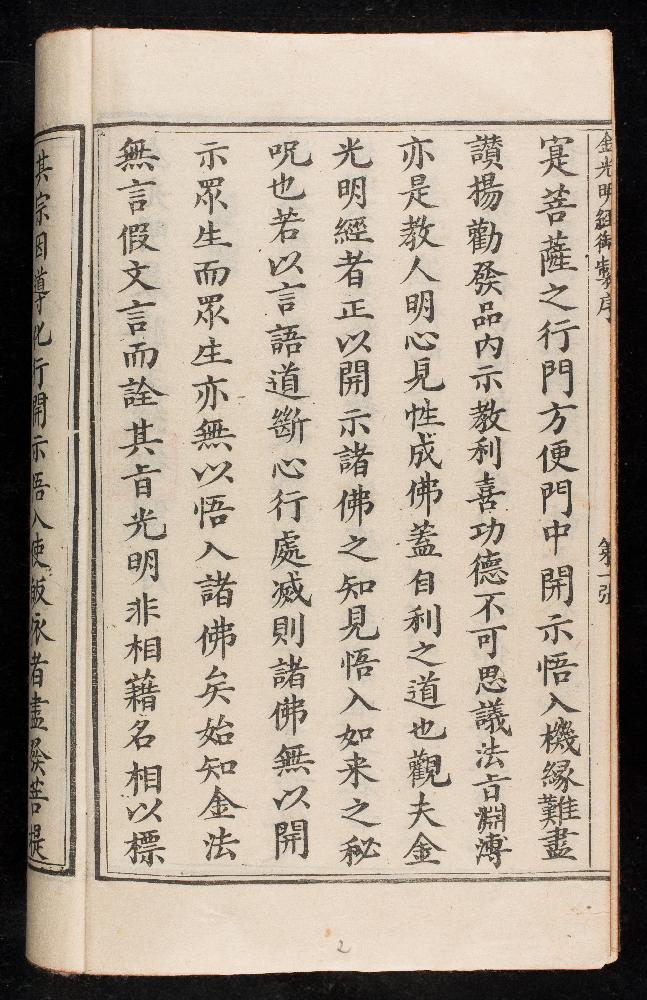 金光明經御製序 第一張
寔菩薩之行門方便門中開示悟入機緣難盡
讚揚勸發品内示教利喜功德不可思議法㫖淵溥
亦是教人明心見性成佛蓋自利之道也觀夫金
光明經者正以開示諸佛之知見悟入如来之秘
呪也若以言語道斷心行處滅則諸佛無以開
示眾生而眾生亦無以悟入諸佛矣始知金法
無言假文言而詮其㫖光明非相藉名相以標
其宗因導化行開示悟入使皈依者盡發菩提